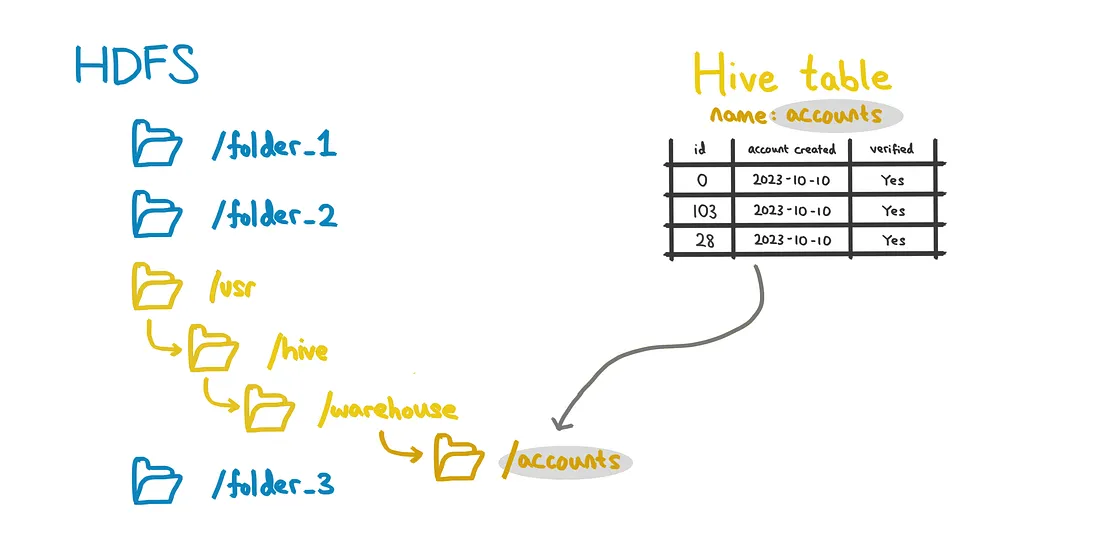 HDFS
/folder_1
/folder_2
/usr
/hive
/warehouse
/accounts
/folder_3
Hive table
name: accounts
id account created verified
0 2023-10-10 Yes
103 2023-10-10 Yes
28 2023-10-10 Yes